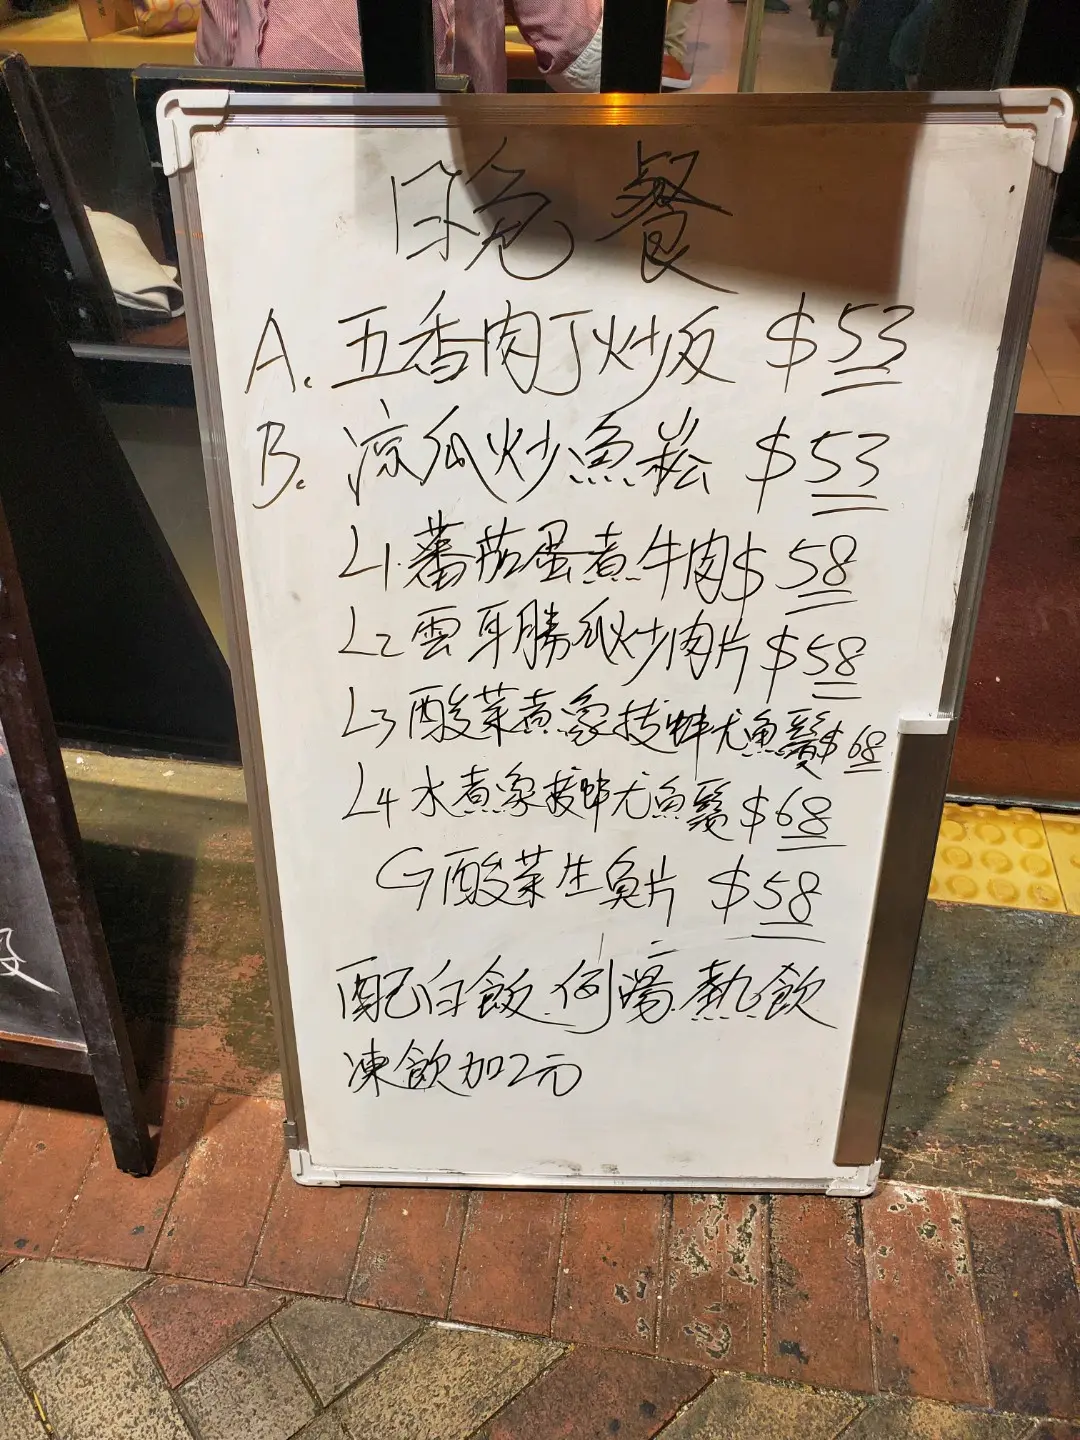 晚餐
A. 五香肉丁炒反 $53
B. 凉瓜炒魚崧 $53
L1. 蕃茄蛋煮牛肉 $58
L2 雲耳勝瓜炒肉片 $58
L3 酸菜煮象拔蚌尤魚鬚 $68
L4 水煮象拔蚌尤魚鬚 $68
G 酸菜生魚片 $58
配白飯.例湯.熱飲
凍飲加2元